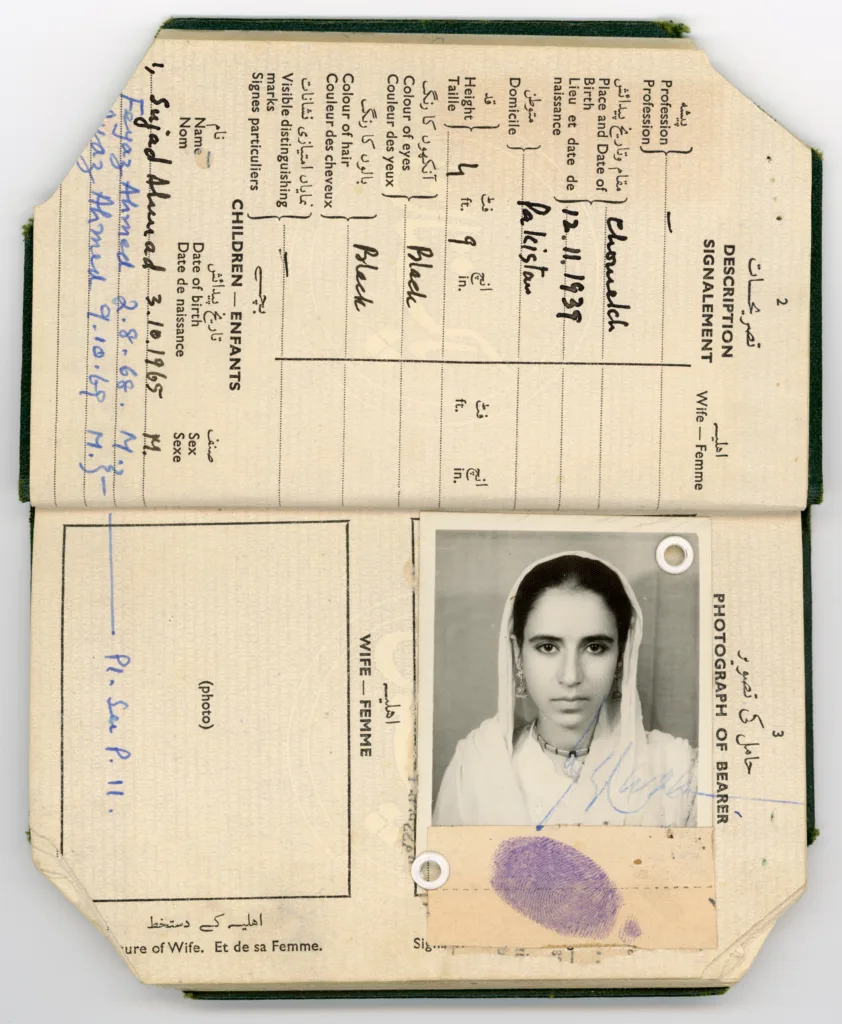 2
تصریحات
DESCRIPTION
SIGNALEMENT
اہلیہ
Wife — Femme
پیشہ
Profession
Profession
—
مقام و تاریخ پیدائش
Place and Date of
Birth
Lieu et date de
naissance
Chowelch
12.11.1939
متوطن
Domicile
Pakistan
قد
Height
Taille
4 فٹ ft. 9 انچ in.
فٹ ft. انچ in.
آنکھوں کا رنگ
Colour of eyes
Couleur des yeux
Black
بالوں کا رنگ
Colour of hair
Couleur des cheveux
Black
نمایاں امتیازی نشانات
Visible distinguishing
marks
Signes particuliers
—
بچے
CHILDREN — ENFANTS
نام تاریخ پیدائش صنف
Name Date of birth Sex
Nom Date de naissance Sexe
1, Sujad Ahmad 3.10.1965 M.
Fayaz Ahmed 2.8.68. M.
Ahmed 9.10.69 M.
Pl. See P. 11.
3
حامل کی تصویر
PHOTOGRAPH OF BEARER
اہلیہ
WIFE — FEMME
(photo)
اہلیہ کے دستخط
ure of Wife. Et de sa Femme.
Sig